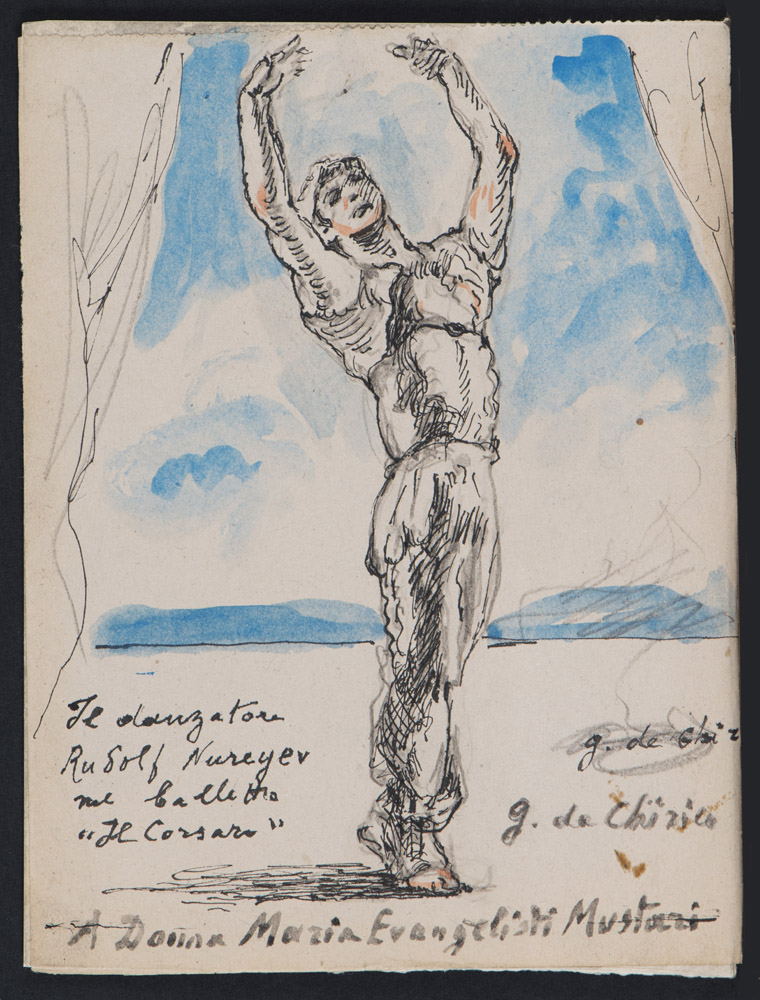 Il danzatore
Rudolf Nureyev
nel balletto
"Il Corsaro"
g. de Chir
g. de Chirico
A Donna Maria Evangelisti Mustari